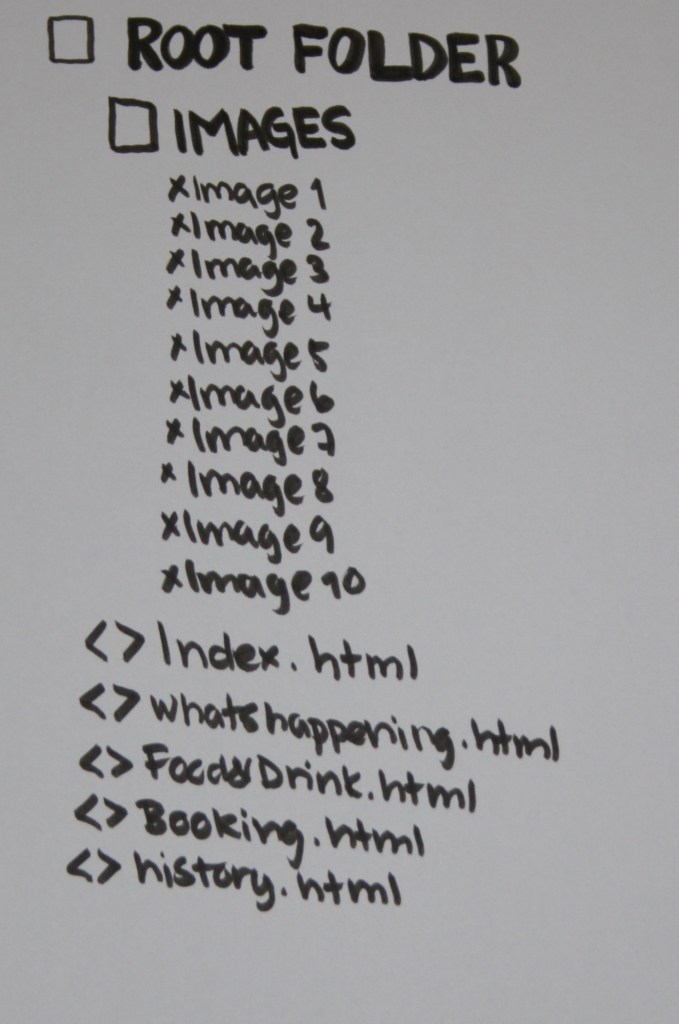 ROOT FOLDER
IMAGES
xImage 1
xImage 2
xImage 3
xImage 4
xImage 5
xImage 6
xImage 7
xImage 8
xImage 9
xImage 10
<> Index.html
<> whatshappening.html
<> Food&Drink.html
<> Booking.html
<> history.html